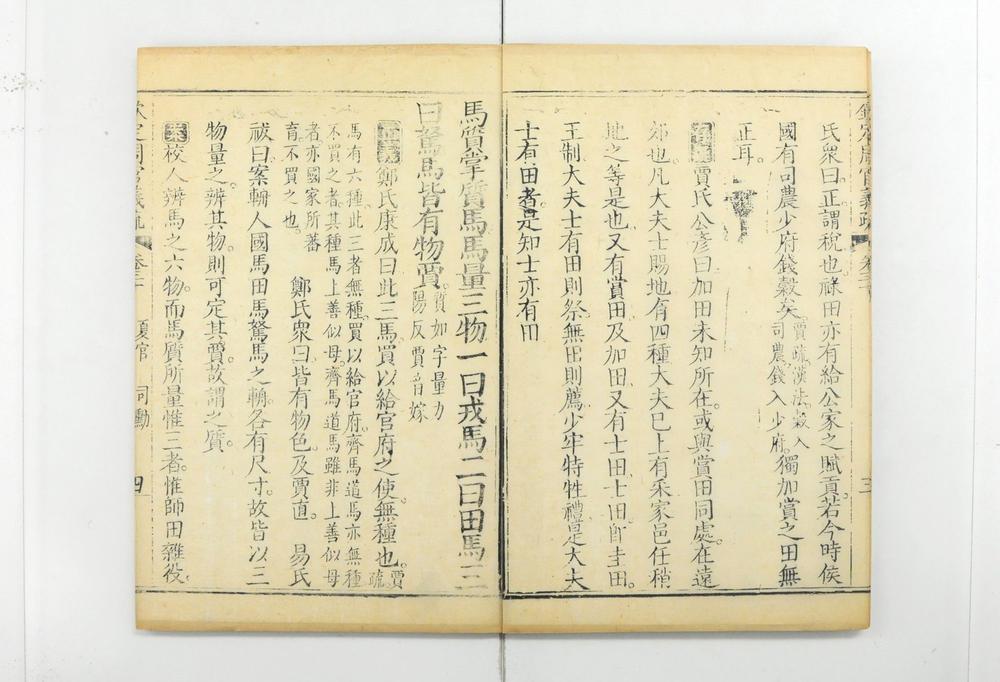 欽定周官義疏 卷三十 三
氏衆曰正謂稅也祿田亦有給公家之賦貢若今時侯
國有司農少府錢穀矣賈疏漢法穀入司農錢入少府獨加賞之田無
正耳
賈氏公彥曰加田未知所在或與賞田同處在遠
郊也凡大夫士賜地有四種大夫已上有采家邑任稍
地之等是也又有賞田及加田又有士田士田即圭田
王制大夫士有田則祭無田則薦少牢特牲禮是大夫
士有田者是知士亦有田
馬質掌質馬馬量三物一曰戎馬二曰田馬三
曰駑馬皆有物賈質如字量力陽反賈音嫁
正義鄭氏康成曰此三馬買以給官府之使無種也賈疏
馬有六種此三者無種買以給官府齊馬道馬亦無種
不買之者其種馬上善似母齊馬道馬雖非上善似母
者亦國家所蕃育不買之也 鄭氏衆曰皆有物色及賈直 易氏
祓曰案輈人國馬田馬駑馬之輈各有尺寸故皆以三
物量之辨其物則可定其賈故謂之質
案校人辨馬之六物而馬質所量惟三者惟師田雜役
欽定周官義疏 卷三十 夏官 司勳 四